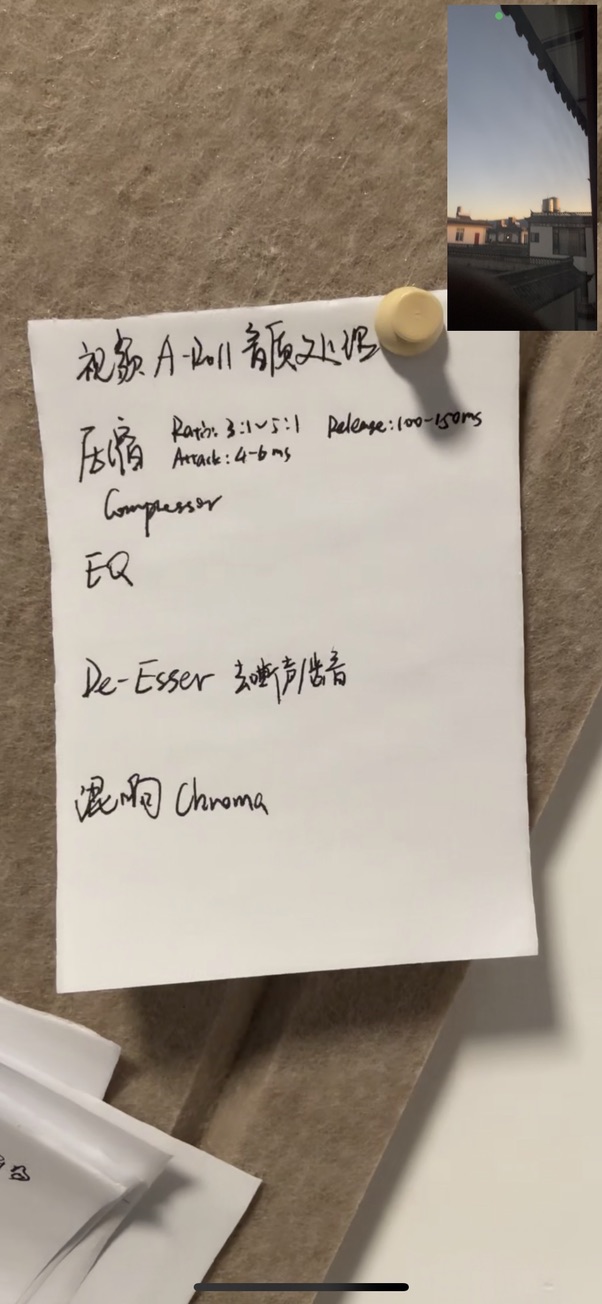 视频 A-Roll 音质处理
压缩 Ratio: 3:1~5:1 Release: 100-150ms
Attack: 4-6ms
Compressor
EQ
De-Esser 去嘶声/齿音
混响 Chroma